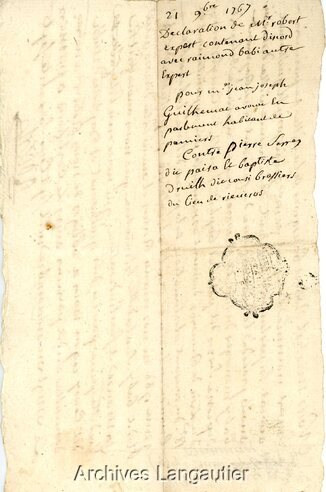 21 9bre 1767
Declaration de Mr robert
expert contenant discord
avec raimond babi autre
Expert
pour mr jean joseph
Guilhemat avocat En
parlement habitant de
pamiers
Contre pierre Serres
dit paita et baptiste
druilh dit brassiers
du lieu de rieucros
Archives Langautier